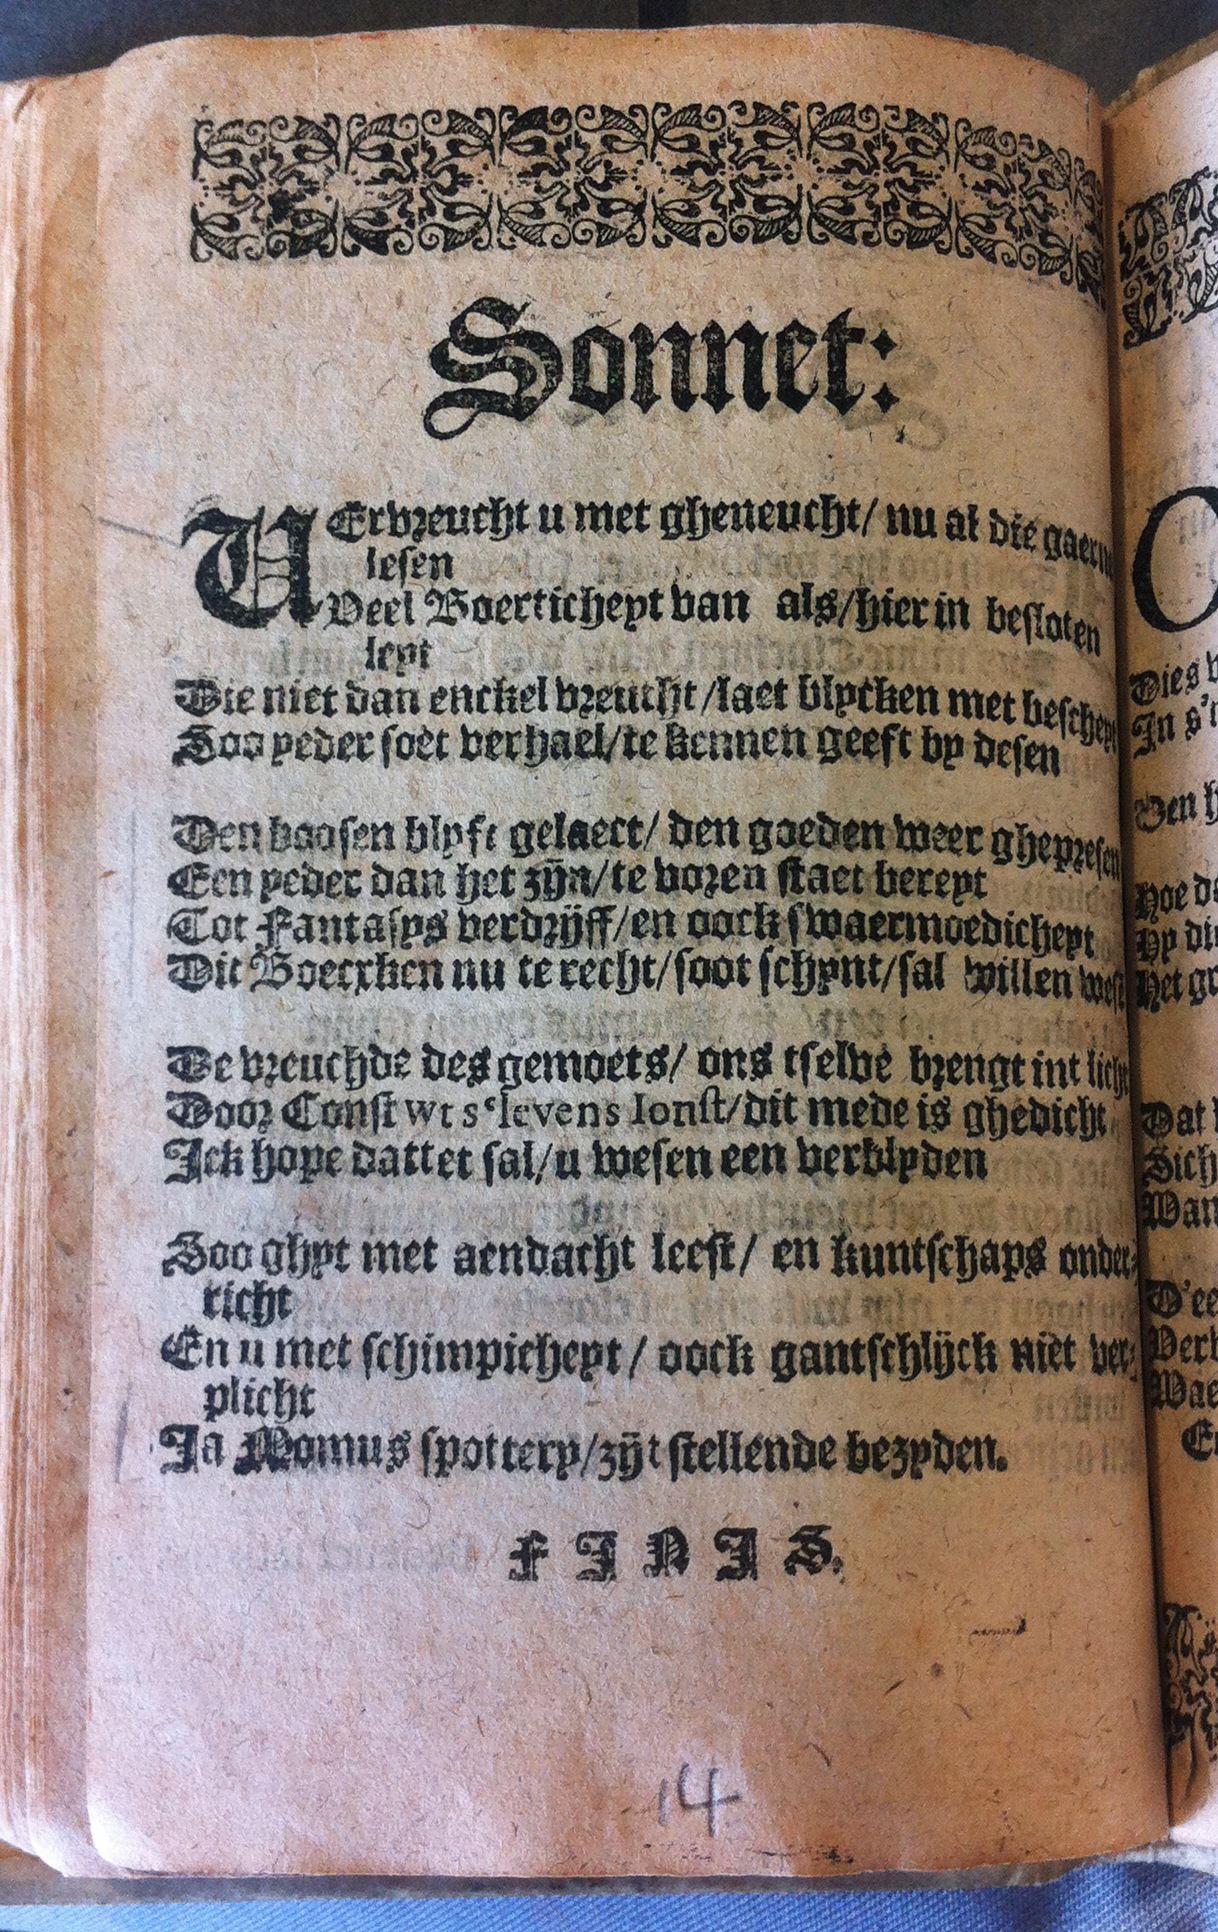 Sonnet:
VErvreucht u met gheneucht/ nu al die gaerne
lesen
Veel Boerticheyt van als/hier in besloten
leyt
Die niet dan enckel vreucht/laet blycken met bescheyt
Soo yeder soet verhael/te kennen geeft by desen
Den boosen blyft gelaect/ den goeden weer ghepresen
Een yeder dan het zijn/te voren staet bereyt
Tot Fantasys verdrijff/en oock swaermoedicheyt
Dit Boecxken nu te recht/soot schynt/sal willen wesen
De vreuchde des gemoets/ ons tselve brengt int licht
Door Const wt s'levens Ionst/dit mede is ghedicht
Ick hope dattet sal/u wesen een verblyden
Soo ghyt met aendacht leest/ en kuntschaps onder-
richt
En u met schimpicheyt/ oock gantschlijck niet ver-
plicht
Ja Momus spottery/zijt stellende bezyden.
FINIS.
14
Dies
In s'
Den
Hoe
Hy
Het
Dat
Sich
Wan
D'ee
Verb
Wae